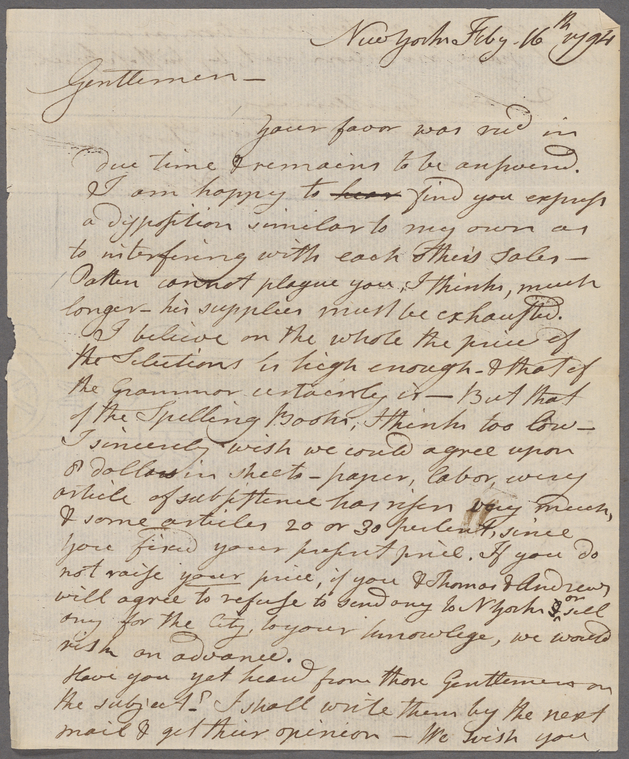 New York Feby. 16th 1794
Gentlemen —
Your favor was recd in
due time & remains to be answered.
& I am happy to hear find you express
a disposition similar to my own as
to interfering with each others sales —
Patten cannot plague you, I think, much
longer — his supplies must be exhausted.
I believe on the whole the price of
the Selections is high enough — & that of
the Grammar certainly is — But that
of the Spelling Books, I think too low —
I sincerely wish we could agree upon
8 dollars in sheets — paper, labor, every
article of subsistence has risen very much,
& some articles 20 or 30 per Cent, since
you fixed your present price. If you do
not raise your price, if you & Thomas & Andrews
will agree to refuse to send any to N York, or sell
any for the City, to your knowlege, we would
risk an advance.
Have you yet heard from those Gentlemen on
the subject? I shall write them by the next
mail & get their opinion — We wish you